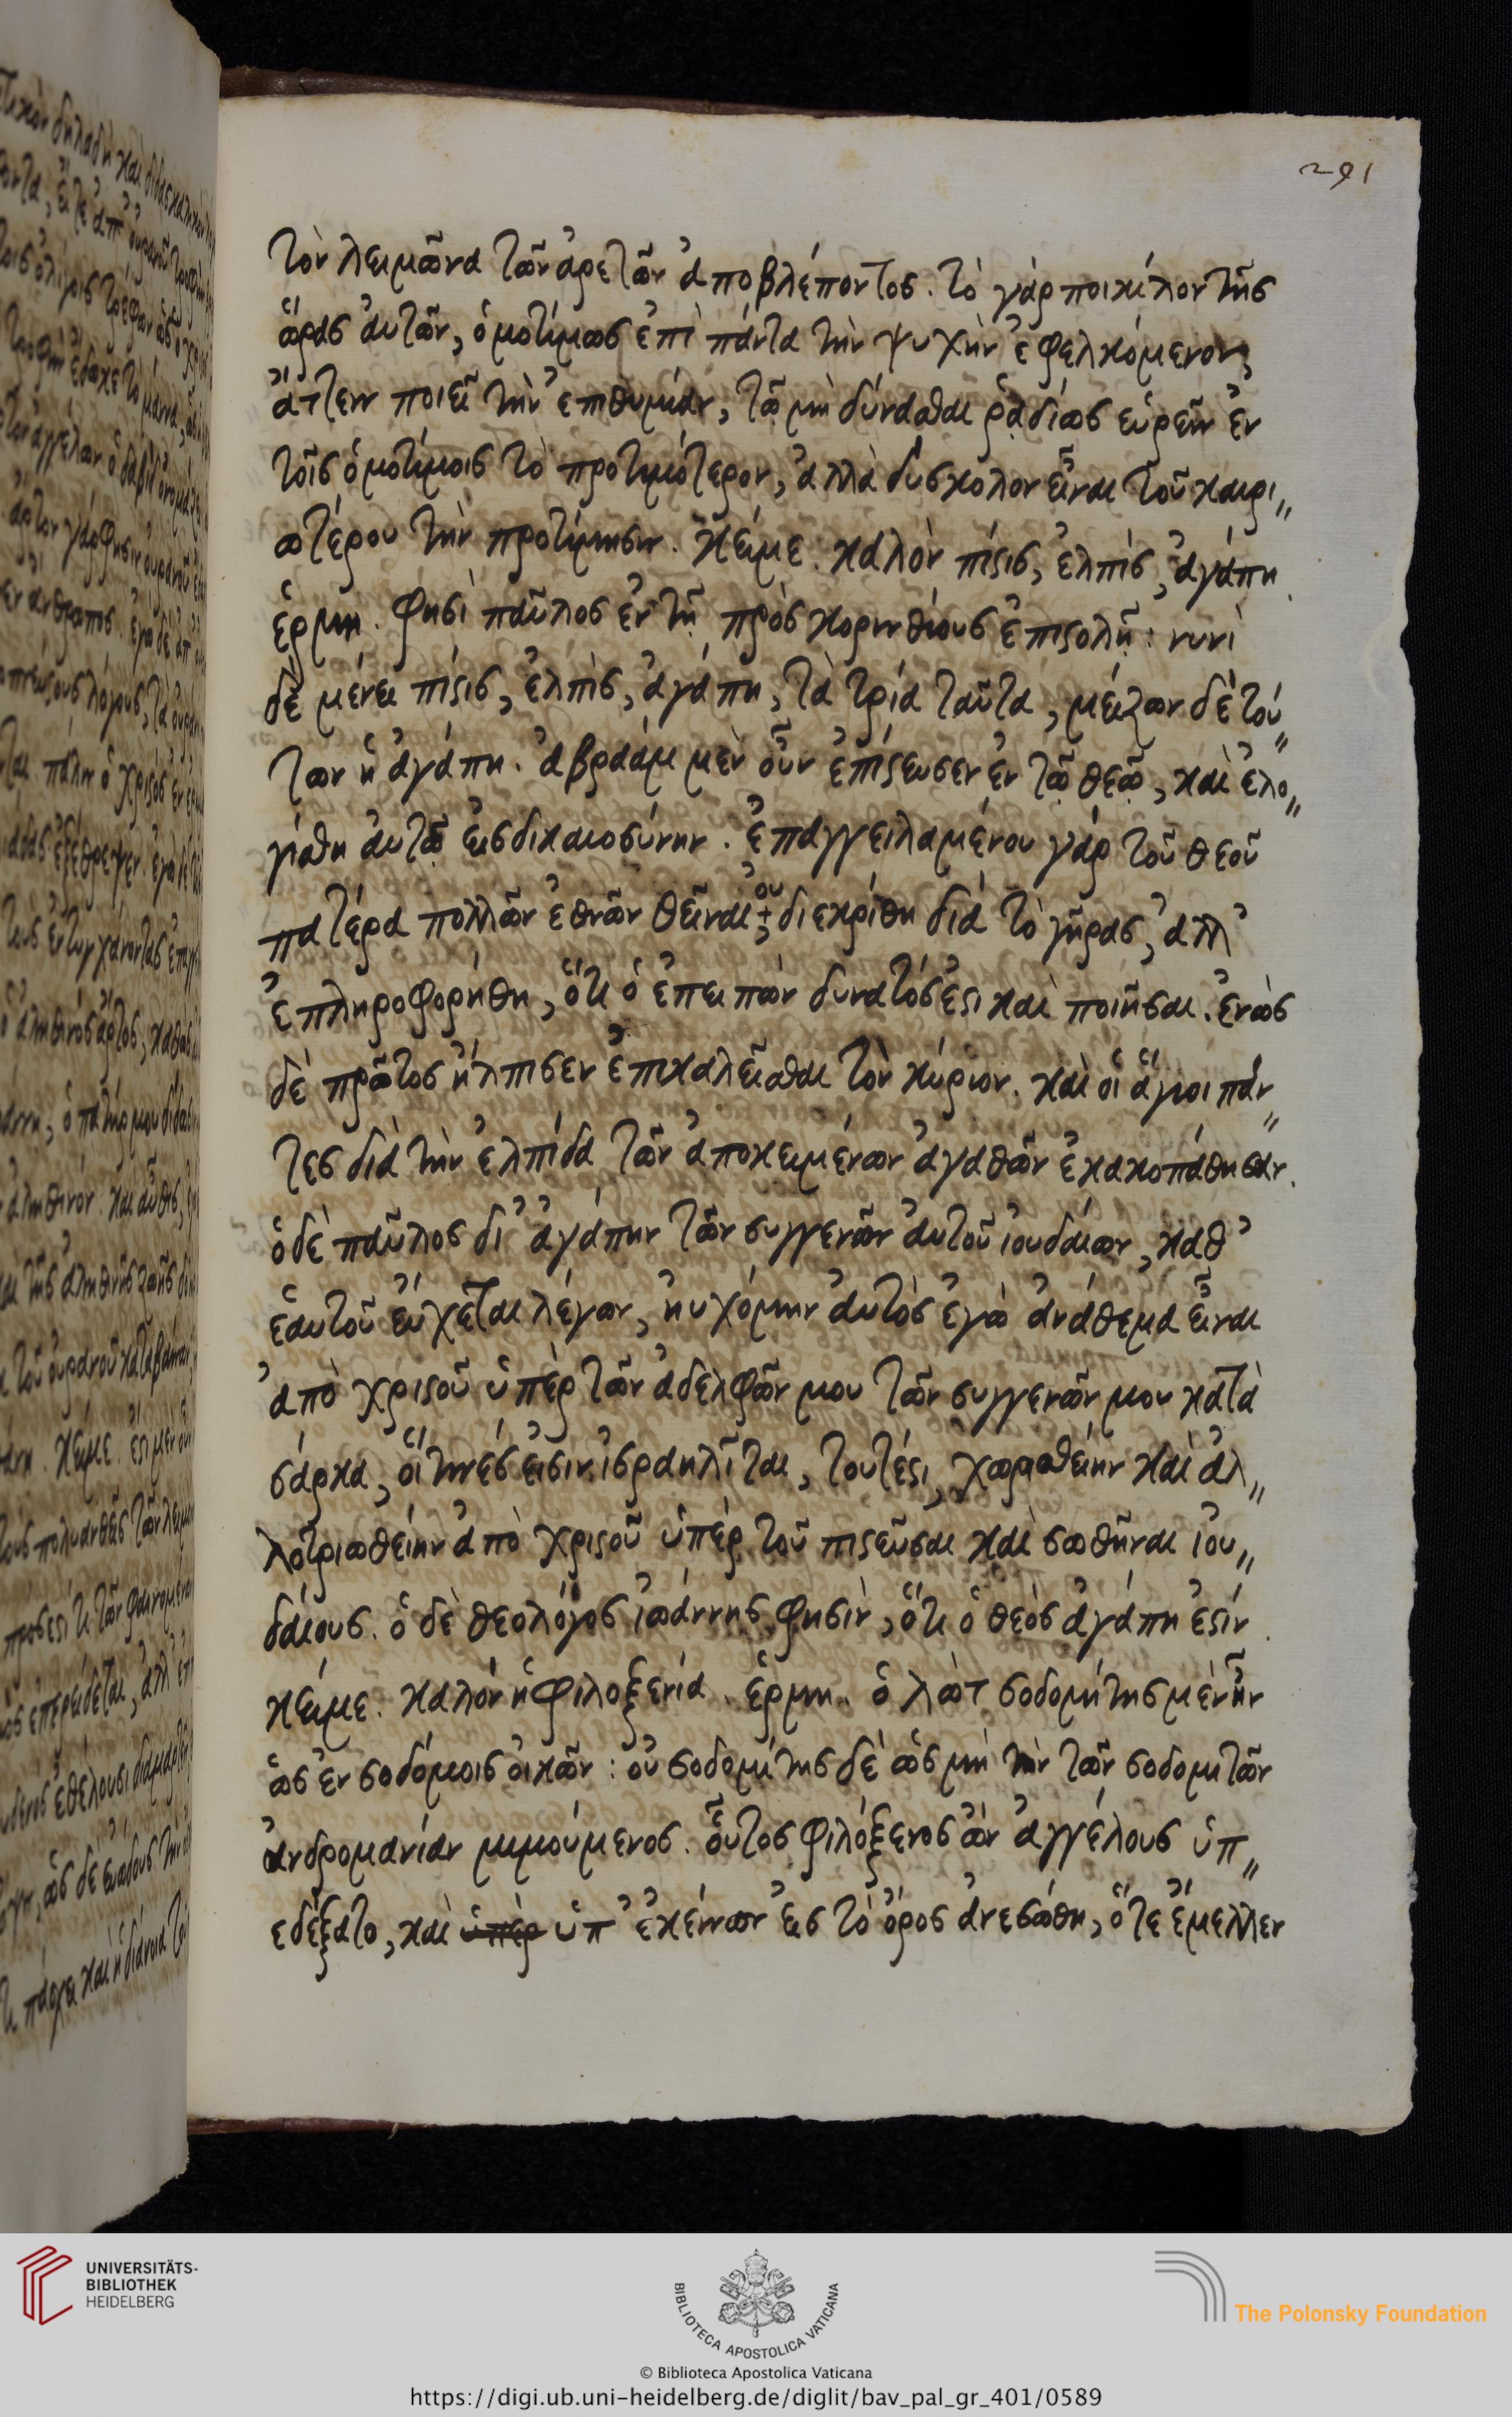 291
τὸν λειμῶνα τῶν ἀρετῶν ἀποβλέποντος. τὸ γὰρ ποικίλον τῆς
ὥρας αὐτῶν, ὁμοτίμως ἐπὶ πάντα τὴν ψυχὴν ἐφελκόμενον,
ἄτζειν ποιεῖ τὴν ἐπιθυμίαν, τῶ μὴ δύνασθαι ῥαδίως εὑρεῖν ἐν
τοῖς ὁμοτίμοις τὸ προτιμότερον, ἀλλὰ δυσκολον εἶναι τοῦ καιρι〃
ωτέρου τὴν προτίμησιν. κείμε. καλὸν πίστις, ἐλπὶς, ἀγάπη.
ἑρμη. φησὶ παῦλος ἐν τῇ πρὸς κορινθίους ἐπιστολῇ: νυνὶ
δὲ μένει πίστις, ἐλπὶς, ἀγάπη, τὰ τρία ταῦτα, μείζων δὲ τού〃
των ἡ ἀγάπη. ἀβραὰμ μὲν οὖν ἐπίστευσεν ἐν τῷ θεῷ, καὶ ἐλο〃
γίσθη αὐτῶ εἰς δικαιοσύνην. ἐπαγγειλαμένου γὰρ τοῦ θεοῦ
πατέρα πολλῶν ἐθνῶν θεῖναι, οὐ διεκρίθη διὰ τὸ γῆρας, ἀλλ'
ἐπληροφορήθη, ὅτι ὁ ἐπειπὼν δυνατός ἐστι καὶ ποιῆσαι. ἐνὼς
δὲ πρῶτος ἤλπισεν ἐπικαλεῖσθαι τὸν κύριον. καὶ οἱ ἅγιοι πάν〃
τες διὰ τὴν ἐλπίδα τῶν ἀποκειμένων ἀγαθῶν ἐκακοπάθησαν.
ὁ δὲ παῦλος δι' ἀγάπην τῶν συγγενῶν αὐτοῦ ἰουδαίων, καθ'
ἑαυτοῦ εὔχεται λέγων, ηυχόμην αὐτὸς ἐγὼ ἀνάθεμα εἶναι
ἀπὸ χριστοῦ ὑπὲρ τῶν ἀδελφῶν μου τῶν συγγενῶν μου κατὰ
σάρκα, οἵτινές εἰσιν ἰσραηλῖται, τουτέστι, χωρισθείην καὶ ἀλ〃
λοτριωθείην ἀπὸ χριστοῦ ὑπὲρ τοῦ πιστεῦσαι καὶ σωθῆναι ἰου〃
δαίους. ὁ δὲ θεολόγος ἰωάννης φησὶν, ὅτι ὁ θεὸς ἀγάπη ἐστίν.
κείμε. καλὸν ἡ φιλοξενία. ἑρμη. ὁ λὼτ σοδομήτης μὲν ἦν
ὡς ἐν σοδόμοις οἰκῶν: οὐ σοδομίτης δὲ ὡς μὴ τὴν τῶν σοδομιτῶν
ἀνδρομανίαν μιμούμενος. οὗτος φιλόξενος ὢν ἀγγέλους ὑπ〃
εδέξατο, καὶ ὑπὲρ ὑπ' ἐκείνων εἰς τὸ ὄρος ἀνεσώθη, ὅτε ἔμελλεν
UNIVERSITÄTS-
BIBLIOTHEK
HEIDELBERG
BIBLIOTECA APOSTOLICA VATICANA
The Polonsky Foundation
© Biblioteca Apostolica Vaticana
https://digi.ub.uni-heidelberg.de/diglit/bav_pal_gr_401/0589